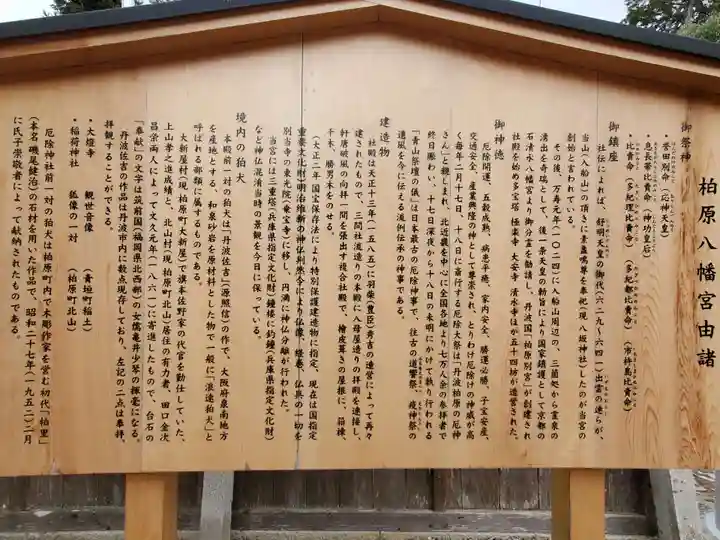 柏原八幡宮由緒
御祭神
・誉田別命（応神天皇）
・息長帯比売命（神功皇后）
・比売命（多紀理比売命）（多紀都比売命）（市杵島比売命）
御鎮座
社伝によれば、舒明天皇の御代（六二九ー六四一）出雲の連らが、
当山（入船山）の頂きに素盞嗚尊を奉祀（現八坂神社）したのが当宮の
創始と言われている。
その後、万寿元年（一〇二四）に入船山周辺の、三箇処から霊泉の
湧出を吉瑞として、後一条天皇の勅旨により国家鎮護として京都の
石清水八幡宮より御分霊を勧請し、丹波国「柏原別宮」が創建され
社殿を始め多宝塔 極楽寺 大安寺 清水寺ほか五十四坊が造営された。
御神徳
厄除開運、五穀成熟、病患平癒、家内安全、勝運必勝、子宝安産、
交通安全、産業興隆の神として尊崇され、とりわけ厄除けの神威が高
く毎年二月十七日、十八日に斎行する厄除大祭は「丹波柏原の厄神
さん」と親しまれ、北近畿を中心に全国各地より七万人余の参拝者で
終日賑わい、十七日深夜から十八日の未明にかけて執り行われる
「青山祭壇の儀」は日本最古の厄除神事で、往古の道饗祭、疫神祭の
遺風を今に伝える流例伝承の神事である。
建造物
社殿は天正十三年（一五八五）に羽柴（豊臣）秀吉の造営によって再々
建されたもので、三間社流造りの本殿に入母屋造りの拝殿を連接し、
軒唐破風の向拝一間を張出す複合社殿で、檜皮葺きの屋根に、箱棟、
千木、勝男木をのせる。
（大正二年国宝保存法により特別保護建造物に指定、現在は国指定
重要文化財）明治維新の神仏判然令により仏像、経巻、仏具の一切を
別当寺の東光院（乗宝寺）に移し、円満に神仏分離が行われた。
当宮には三重塔（兵庫県指定文化財）鐘楼に釣鐘（兵庫県指定文化財）
など神仏混淆当時の景観を今日に保っている。
境内の狛犬
本殿前一対の狛犬は「丹波佐吉」（源照信）の作で、大阪府泉南地方
を産地とする、和泉砂岩を原材料とした物で一般に「浪速狛犬」と
呼ばれる部類に属するものである。
大新屋村（現柏原町大新屋）で旗本佐野家の代官を勤仕していた、
上山孝之進成績と、北山村（現柏原町北山）居住の有力者、田口金次
昌栄両人によって文久元年（一八六一）に寄進したもので、台石の
「奉献」の文字は筑前国（福岡県北西部）の女儒亀井少琴の揮毫になる。
丹波佐吉の作品は丹波市内に数点現存しており、左記の二点は奉拝、
拝観することができる。
・大燈寺　観世音像　（青垣町稲土）
・稲荷神社　狐像の一対　（柏原町北山）
厄除神社前一対の狛犬は柏原町内で木彫作家を営む初代「柏里」
（本名 磯尾健治）の石材を用いた作品で、昭和二十七年（一九五二）二月
に氏子崇敬者によって献納されたものである。